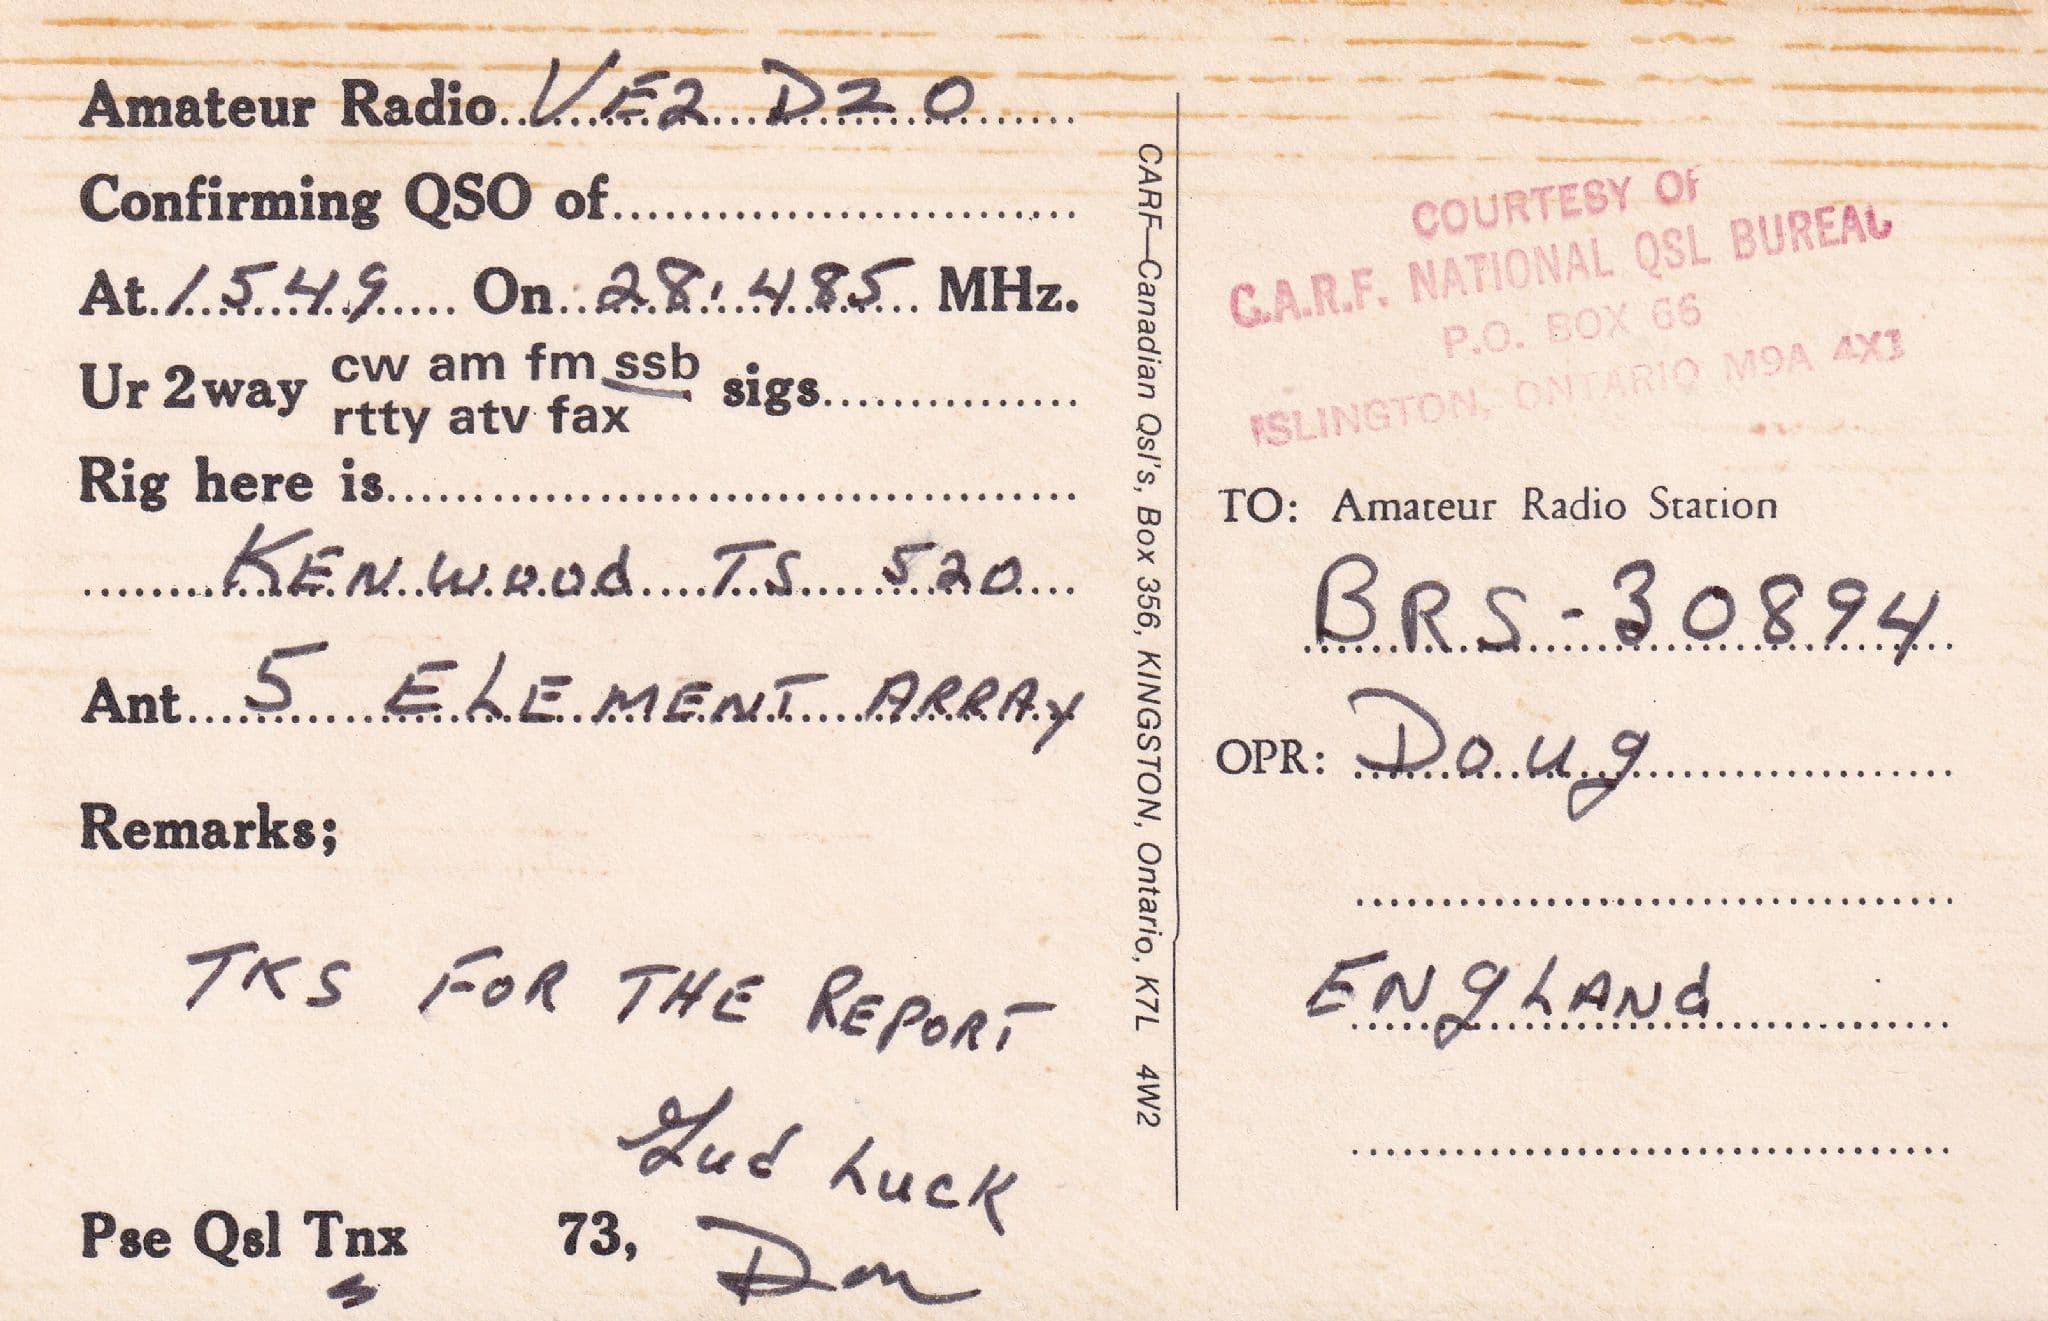 Amateur Radio VE2 DZO
Confirming QSO of
At 1549 On 28.485 MHz.
Ur 2way cw am fm ssb sigs
rtty atv fax
Rig here is
KENWOOD TS 520
Ant 5 ELEMENT ARRAY
Remarks;
TKS FOR THE REPORT
Gud LUCK
Pse Qsl Tnx 73, Don
CARF—Canadian Qsl's, Box 356, KINGSTON, Ontario, K7L 4W2
COURTESY OF
C.A.R.F. NATIONAL QSL BUREAU
P.O. BOX 66
ISLINGTON, ONTARIO M9A 4X1
TO: Amateur Radio Station
BRS-30894
OPR: Doug
ENGLANd